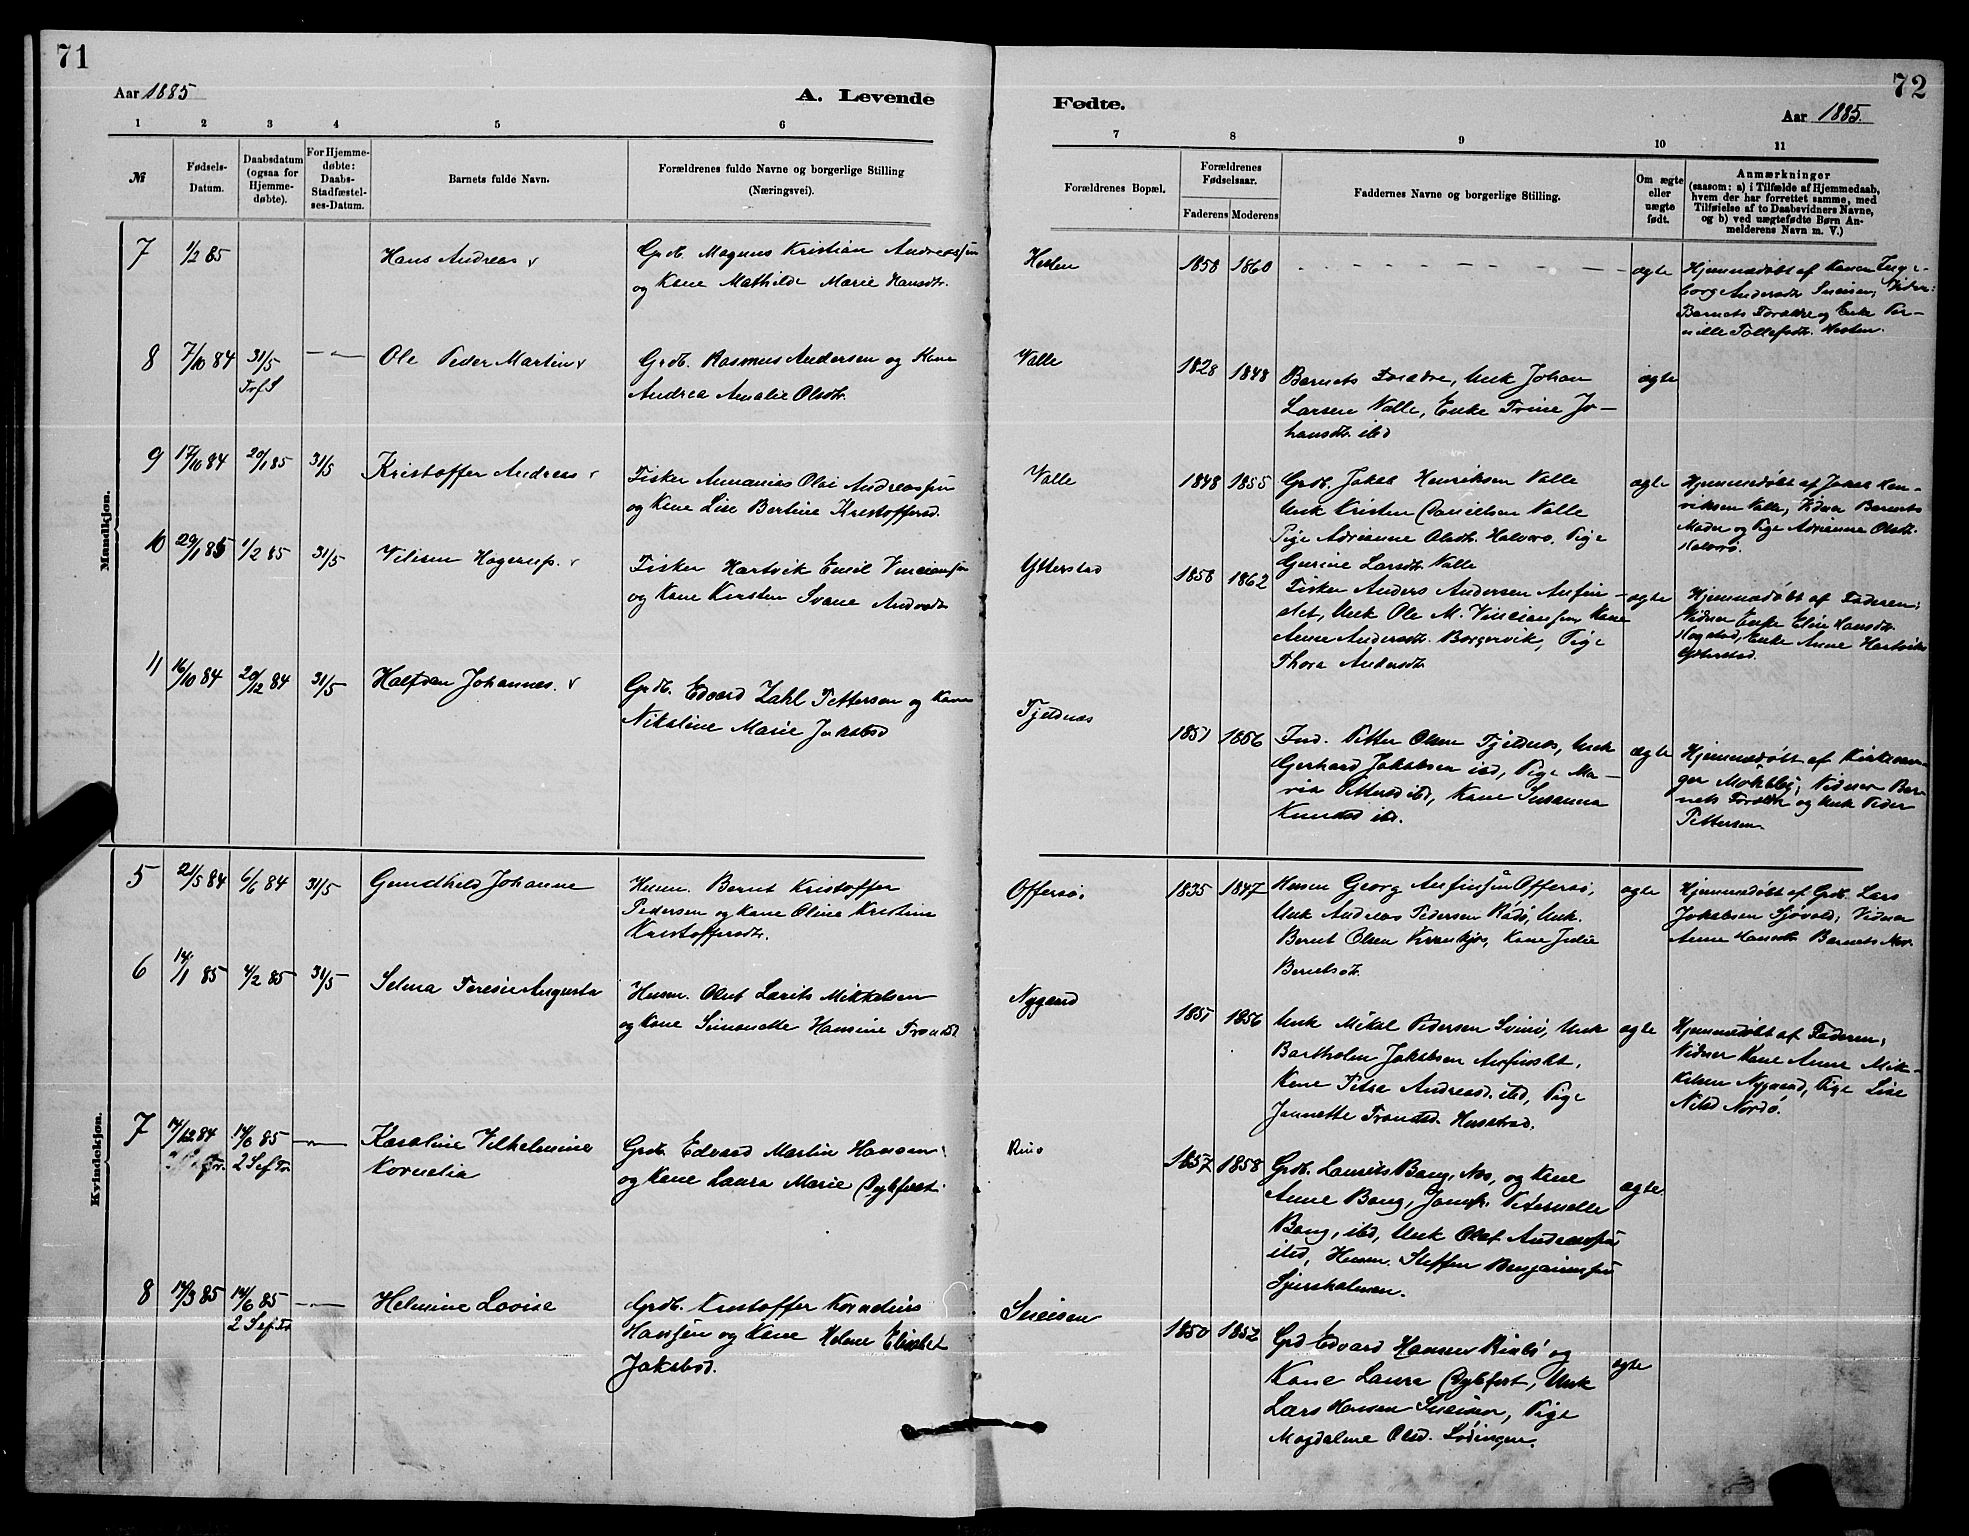 71
Aar 1885
A. Levende
1 2 3 4 5 6
№
Fødsels-
Datum.
Daabsdatum
(ogsaa for
Hjemme-
døbte).
For Hjemme-
døbte:
Daabs-
Stadfæstel-
ses-Datum.
Barnets fulde Navn.
Forældrenes fulde Navne og borgerlige Stilling
(Næringsvei).
Mandkjøn.
7 1/2 85 Hans Andreas
Grdb. Magnus Kristian Andreassen
og Kone Mathilde Marie Hansdtr.
8 7/10 84 31/5
Ole Peder Martin
Grdb. Rasmus Andersen og Kone
Andrea Amalie Olsdtr.
9 17/10 84 20/1 85 31/5 Kristoffer Andreas
Fisker Annanias Olai Andreassen
og Kone Lise Bertine Kristoffersd.
10 29/1 85 1/2 85 31/5 Hagerup.
Fisker Hartvik Emil
og Kone Kirsten Svane
11 16/10 84 20/12 84 31/5 Halfdan Johannes.
Grdb. Edvard Zahl Pettersen og Kone
Nikoline Marie Jakobsd
Kvindekjøn.
5 21/5 84 6/6 84 31/5 Gundhild Johanne
Husm. Bernt Kristoffer
Pedersen og Kone Oline Kristine
Kristoffersdtr.
6 14/1 85 4/2 85 31/5 Selma Teresie Augusta
Husm. Oluf Larits Mikkelsen
og Kone Simonette Hansine
7 14/12 84 14/6 85
2 S ef Tr.
Karoline Vilhelmine
Kornelia
Grdb. Edvard Martin Hansen
og Kone Laura Marie Dybfest
8 17/3 85 14/6 85
2 S ef Tr
Helmine Lovise
Grdb. Kristoffer Kornelius
Hansen og Kone Helene Elisabet
Jakobsd.
72
Fødte.
Aar 1885.
7 8 9 10 11
Forældrenes Bopæl.
Forældrenes
Fødselsaar.
Faderens Moderens
Faddernes Navne og borgerlige Stilling.
Om ægte
eller
uægte
født.
Anmærkninger
(saasom: a) i Tilfælde af Hjemmedaab,
hvem der har forrettet samme, med
Tilføielse af to Daabsvidners Navne,
og b) ved uægtefødte Børn An-
melderens Navn m. V.)
Hesten 1858 1860 ægte
Hjemmedøbt af Konen Inge-
borg Andersdtr Sneisen; Vidner:
Barnets Forældre og Enke Per-
nille Tollefsdtr. Hesten.
Valle 1828 1848 ægte
Barnets Forældre, Unk Johan
Larsen Valle, Enke Trine Jo-
hansdtr. ibd
Valle 1848 1855 ægte
Grdb. Jakob Henriksen Valle
Unk Kristen Danielsen Valle
Pige Adrianne Olsdtr. Halvorø. Pige
Gurine Larsdtr. Valle
Hjemmedøbt af Jakob Hen-
riksen Valle, Vidner Barnets
Moder og Pige Adrianne Olsdtr.
Halvorø.
Ytterstad 1858 1862 ægte
Fisker Anders Andersen
Unk Ole M. Kone
Anne Andersdtr. Borgervik, Pige
Thora Andersdtr.
Hjemmedøbt af Faderen;
Vidner Enke Elen Hansdtr.
Enke Anne
Ytterstad.
Tjeldnæs 1851 1856 ægte
Petter Olsen Tjeldnæs, Unk
Gerhard Jakobsen ibd, Pige Ma-
ria Pettersd ibd, Kone Susanna
Knudsd ibd.
Hjemmedøbt af Kirkesan-
ger Møkelbý; Vidner Bar-
nets Forældre og Unk Peder
Pettersen.
Offersø. 1835 1847 ægte
Husm Georg Offersø,
Unk Andreas Pedersen Rødø, Unk.
Bernt Olsen Kone Julie
Berntsdtr.
Hjemmedøbt af Grdb. Lars
Jakobsen Vidner
Anne Hansdtr Barnets Mor.
Nygaard 1851 1856 ægte
Unk Mikal Pedersen Svinø, Unk
Bartholm Jakobsen
Kone Petra Andreasd. ibd, Pige
Jannette
Hjemmedøbt af Faderen;
Vidner Kone Anne Mik-
kelsen Nygaard, Pige Lise
Nilsd Nordø.
Rinø 1857 1858 ægte
Grdb. Laurits Bang, Næs, og Kone
Anne Bang, Jomfr. Peternelle
Bang, ibd, Unk Olaf Andreassen
ibd, Husm. Steffen Benjaminsen
Sneisen 1850 1852 ægte
Grd Edvard Hansen Rinø og
Kone Laura Dybfest, Unk
Lars Hansen Sneisen, Pige
Magdalene Olsd. Lødingen.